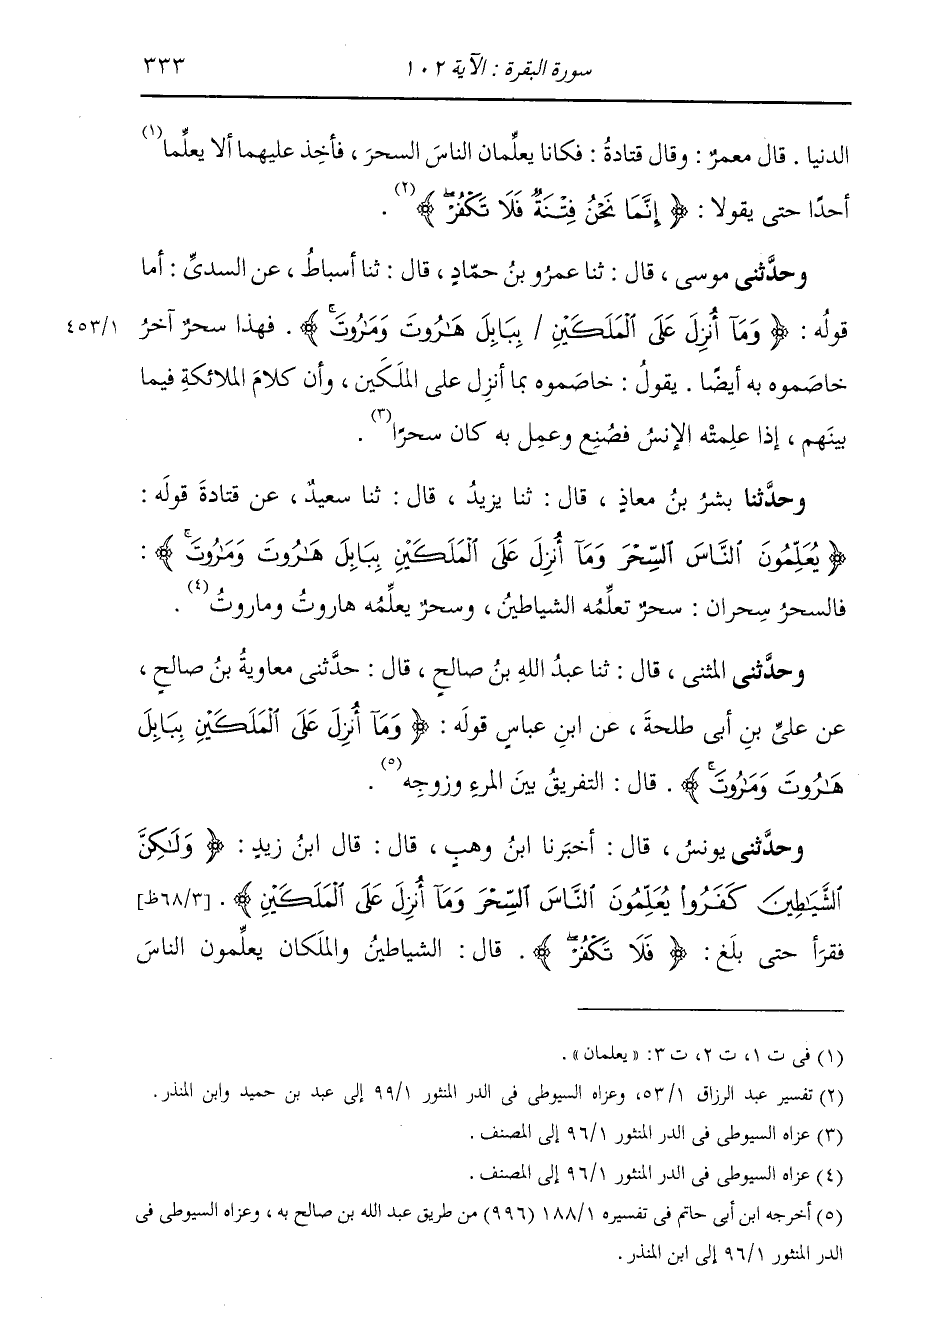 سورة البقرة : الآية ١٠٢ ٣٣٣
الدنيا . قال معمرٌ : وقال قتادةُ : فكانا يعلِّمان الناسَ السحرَ ، فأُخِذ عليهما ألا يعلِّما(١)
أحدًا حتى يقولا : ﴿ إِنَّمَا نَحْنُ فِتْنَةٌ فَلَا تَكْفُرْ ﴾(٢) .
وحدَّثنى موسى ، قال : ثنا عمرُو بنُ حمّادٍ ، قال : ثنا أسباطُ ، عن السدىِّ : أما
قولُه : ﴿ وَمَآ أُنزِلَ عَلَى ٱلْمَلَكَيْنِ / بِبَابِلَ هَٰرُوتَ وَمَٰرُوتَۚ ﴾ . فهذا سحرٌ آخرُ ٤٥٣/١
خاصَموه به أيضًا . يقولُ : خاصَموه بما أنزِل على الملَكَين ، وأن كلامَ الملائكةِ فيما
بينَهم ، إذا علِمتْه الإنسُ فصُنِع وعمِل به كان سحرًا(٣) .
وحدَّثنا بشرُ بنُ معاذٍ ، قال : ثنا يزيدُ ، قال : ثنا سعيدٌ ، عن قتادةَ قولَه :
﴿ يُعَلِّمُونَ ٱلنَّاسَ ٱلسِّحْرَ وَمَآ أُنزِلَ عَلَى ٱلْمَلَكَيْنِ بِبَابِلَ هَٰرُوتَ وَمَٰرُوتَۚ ﴾ :
فالسحرُ سِحران : سحرٌ تعلِّمُه الشياطينُ ، وسحرٌ يعلِّمُه هاروتُ وماروتُ(٤) .
وحدَّثنى المثنى ، قال : ثنا عبدُ اللهِ بنُ صالحٍ ، قال : حدَّثنى معاويةُ بنُ صالحٍ ،
عن علىِّ بنِ أبى طلحةَ ، عن ابنِ عباسٍ قولَه : ﴿ وَمَآ أُنزِلَ عَلَى ٱلْمَلَكَيْنِ بِبَابِلَ
هَٰرُوتَ وَمَٰرُوتَۚ ﴾ . قال : التفريقُ بينَ المرءِ وزوجِه(٥) .
وحدَّثنى يونسُ ، قال : أخبَرنا ابنُ وهبٍ ، قال : قال ابنُ زيدٍ : ﴿ وَلَٰكِنَّ
ٱلشَّيَٰطِينَ كَفَرُوا۟ يُعَلِّمُونَ ٱلنَّاسَ ٱلسِّحْرَ وَمَآ أُنزِلَ عَلَى ٱلْمَلَكَيْنِ ﴾ . [٦٨/٣ظ]
فقرَأ حتى بلَغ : ﴿ فَلَا تَكْفُرْ ﴾ . قال : الشياطينُ والملَكان يعلِّمون الناسَ
(١) فى ت ١، ت ٢، ت ٣: « يعلمان » .
(٢) تفسير عبد الرزاق ٥٣/١، وعزاه السيوطى فى الدر المنثور ٩٩/١ إلى عبد بن حميد وابن المنذر .
(٣) عزاه السيوطى فى الدر المنثور ٩٦/١ إلى المصنف .
(٤) عزاه السيوطى فى الدر المنثور ٩٦/١ إلى المصنف .
(٥) أخرجه ابن أبى حاتم فى تفسيره ١٨٨/١ (٩٩٦) من طريق عبد الله بن صالح به ، وعزاه السيوطى فى
الدر المنثور ٩٦/١ إلى ابن المنذر .